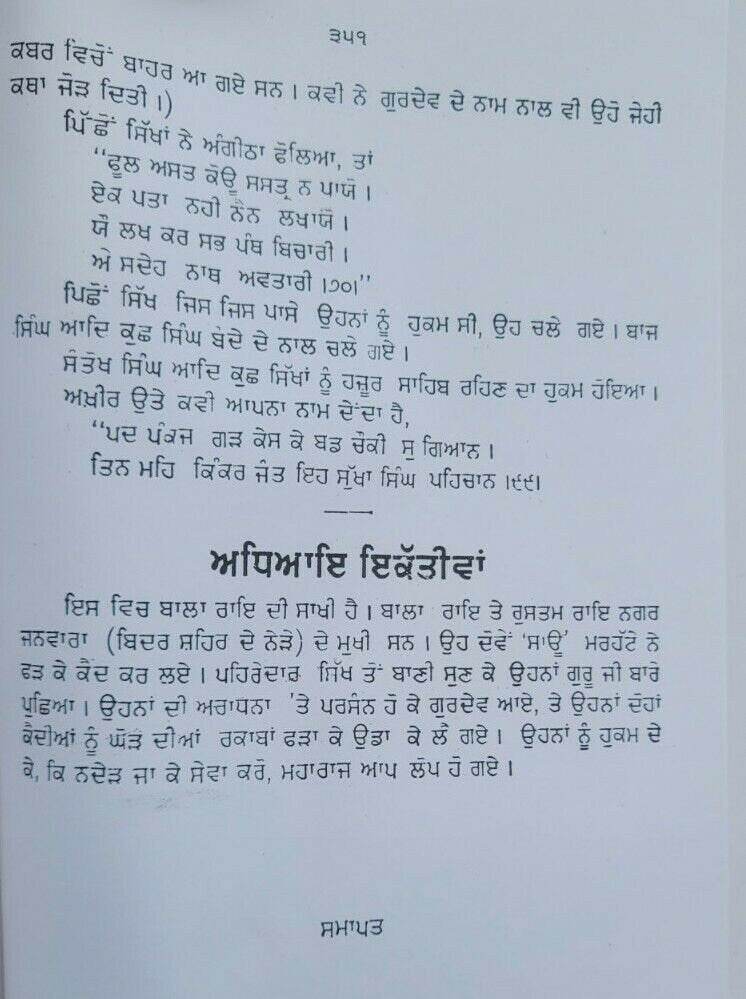 ੩੫੧
ਕਬਰ ਵਿਚੋਂ ਬਾਹਰ ਆ ਗਏ ਸਨ । ਕਵੀ ਨੇ ਗੁਰਦੇਵ ਦੇ ਨਾਮ ਨਾਲ ਵੀ ਉਹੋ ਜੇਹੀ
ਕਥਾ ਜੋੜ ਦਿਤੀ ।)
ਪਿੱਛੋਂ ਸਿੱਖਾਂ ਨੇ ਅੰਗੀਠਾ ਫੋਲਿਆ, ਤਾਂ
“ਫੂਲ ਅਸਤ ਕੋਊ ਸਸਤ੍ਰ ਨ ਪਾਯੋ ।
ਏਕ ਪਤਾ ਨਹੀ ਨੈਨ ਲਖਾਯੋ ।
ਯੌ ਲਖ ਕਰ ਸਭ ਪੰਥ ਬਿਚਾਰੀ ।
ਐ ਸਦੇਹ ਨਾਥ ਅਵਤਾਰੀ ।੭੦।”
ਪਿਛੋਂ ਸਿੱਖ ਜਿਸ ਜਿਸ ਪਾਸੇ ਉਹਨਾਂ ਨੂੰ ਹੁਕਮ ਸੀ, ਉਹ ਚਲੇ ਗਏ । ਬਾਜ
ਸਿੰਘ ਆਦਿ ਕੁਛ ਸਿੰਘ ਬੰਦੇ ਦੇ ਨਾਲ ਚਲੇ ਗਏ ।
ਸੰਤੋਖ ਸਿੰਘ ਆਦਿ ਕੁਛ ਸਿੱਖਾਂ ਨੂੰ ਹਜ਼ੂਰ ਸਾਹਿਬ ਰਹਿਣ ਦਾ ਹੁਕਮ ਹੋਇਆ ।
ਅਖ਼ੀਰ ਉਤੇ ਕਵੀ ਆਪਨਾ ਨਾਮ ਦੇਂਦਾ ਹੈ,
“ਪਦ ਪੰਕਜ ਗੜ ਕੇਸ ਕੇ ਬਡ ਚੌਕੀ ਸੁ ਗਿਆਨ ।
ਤਿਨ ਮਹਿ ਕਿੰਕਰ ਜੰਤ ਇਹ ਸੁੱਖਾ ਸਿੰਘ ਪਹਿਚਾਨ ।੯੯।
ਅਧਿਆਇ ਇਕੱਤੀਵਾਂ
ਇਸ ਵਿਚ ਬਾਲਾ ਰਾਇ ਦੀ ਸਾਖੀ ਹੈ । ਬਾਲਾ ਰਾਇ ਤੇ ਰੁਸਤਮ ਰਾਇ ਨਗਰ
ਜਨਵਾਰਾ (ਬਿਦਰ ਸ਼ਹਿਰ ਦੇ ਨੇੜੇ) ਦੇ ਮੁਖੀ ਸਨ । ਉਹ ਦੋਵੇਂ ‘ਸਾਊ’ ਮਰਹੱਟੇ ਨੇ
ਫੜ ਕੇ ਕੈਦ ਕਰ ਲਏ । ਪਹਿਰੇਦਾਰ ਸਿੱਖ ਤੋਂ ਬਾਣੀ ਸੁਣ ਕੇ ਉਹਨਾਂ ਗੁਰੂ ਜੀ ਬਾਰੇ
ਪੁਛਿਆ । ਉਹਨਾਂ ਦੀ ਅਰਾਧਨਾ ’ਤੇ ਪਰਸੰਨ ਹੋ ਕੇ ਗੁਰਦੇਵ ਆਏ, ਤੇ ਉਹਨਾਂ ਦੋਹਾਂ
ਕੈਦੀਆਂ ਨੂੰ ਘੋੜੇ ਦੀਆਂ ਰਕਾਬਾਂ ਫੜਾ ਕੇ ਉਡਾ ਕੇ ਲੈ ਗਏ । ਉਹਨਾਂ ਨੂੰ ਹੁਕਮ ਦੇ
ਕੇ, ਕਿ ਨਦੇੜ ਜਾ ਕੇ ਸੇਵਾ ਕਰੋ, ਮਹਾਰਾਜ ਆਪ ਲੋਪ ਹੋ ਗਏ ।
ਸਮਾਪਤ